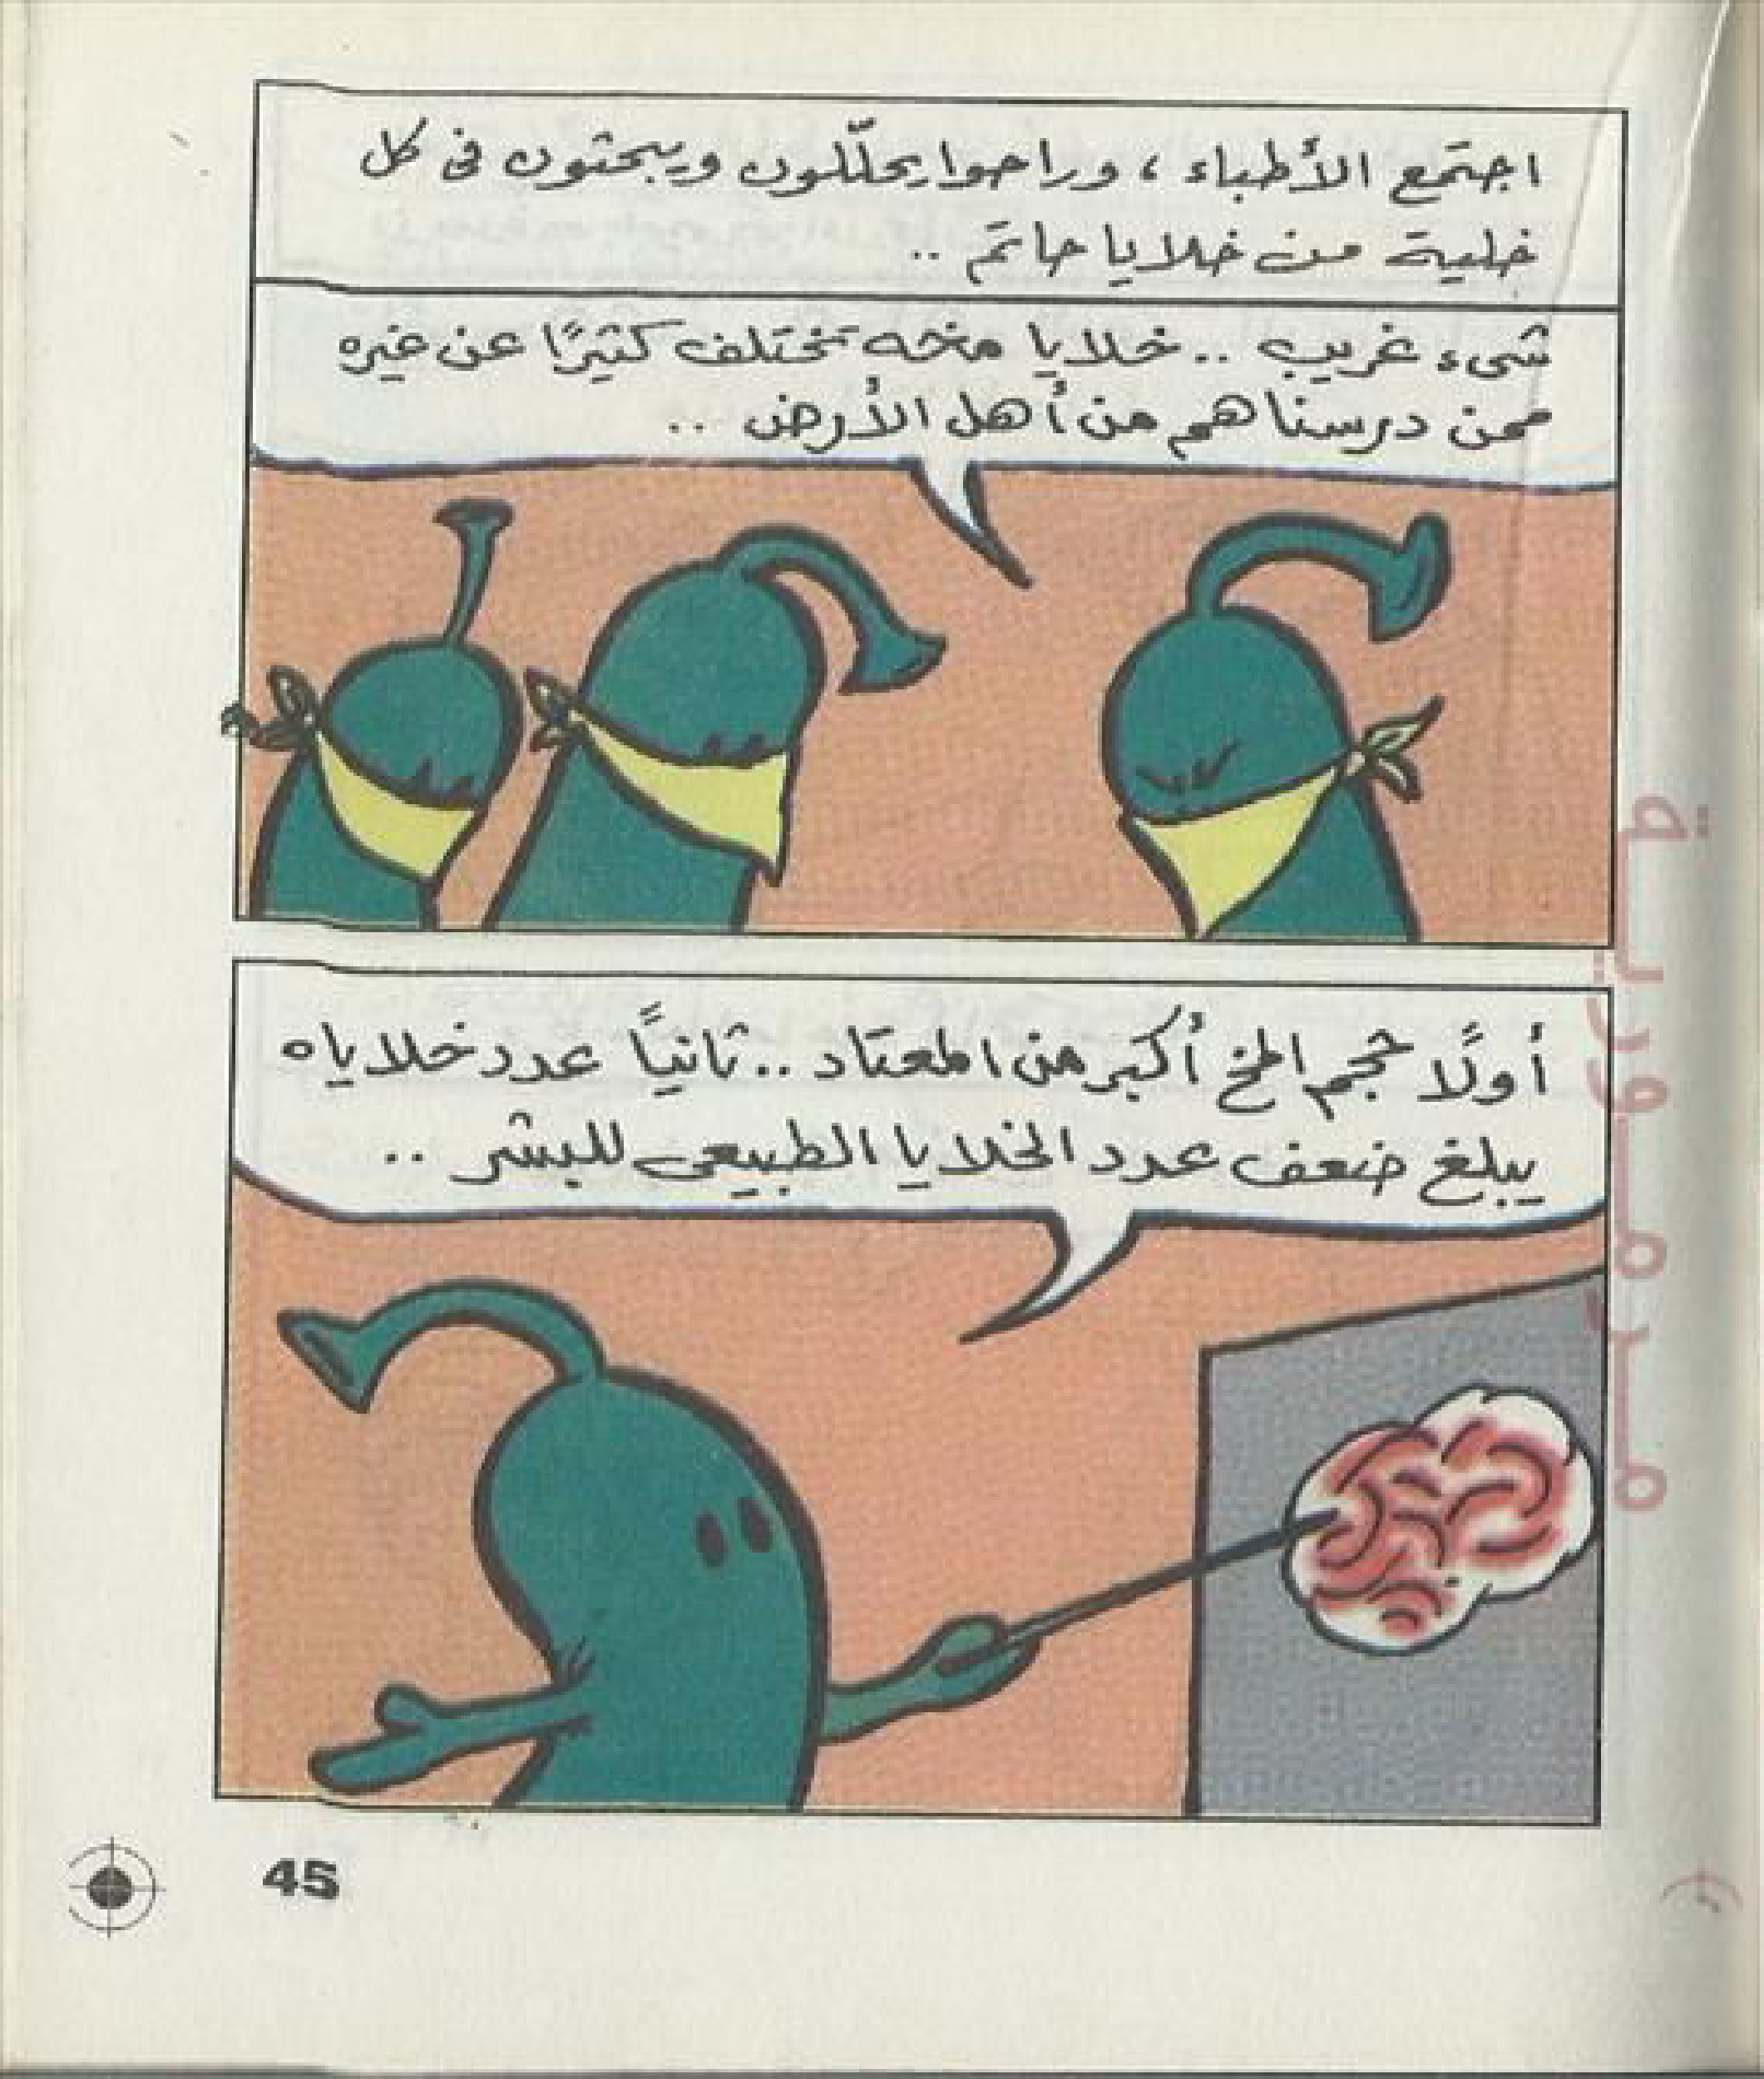 اجتمع الأطباء ، وراحوا يحلّلون ويبحثون فى كل
خلية من خلايا حاتم ..
شىء غريب .. خلايا مخه تختلف كثيرًا عن غيره
ممن درسناهم من أهل الأرض ..
أولًا حجم المخ أكبر من المعتاد .. ثانيًا عدد خلاياه
يبلغ ضعف عدد الخلايا الطبيعى للبشر ..
45